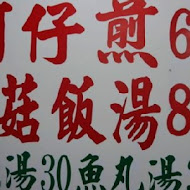 仔煎6
菇飯湯8
湯30魚丸湯